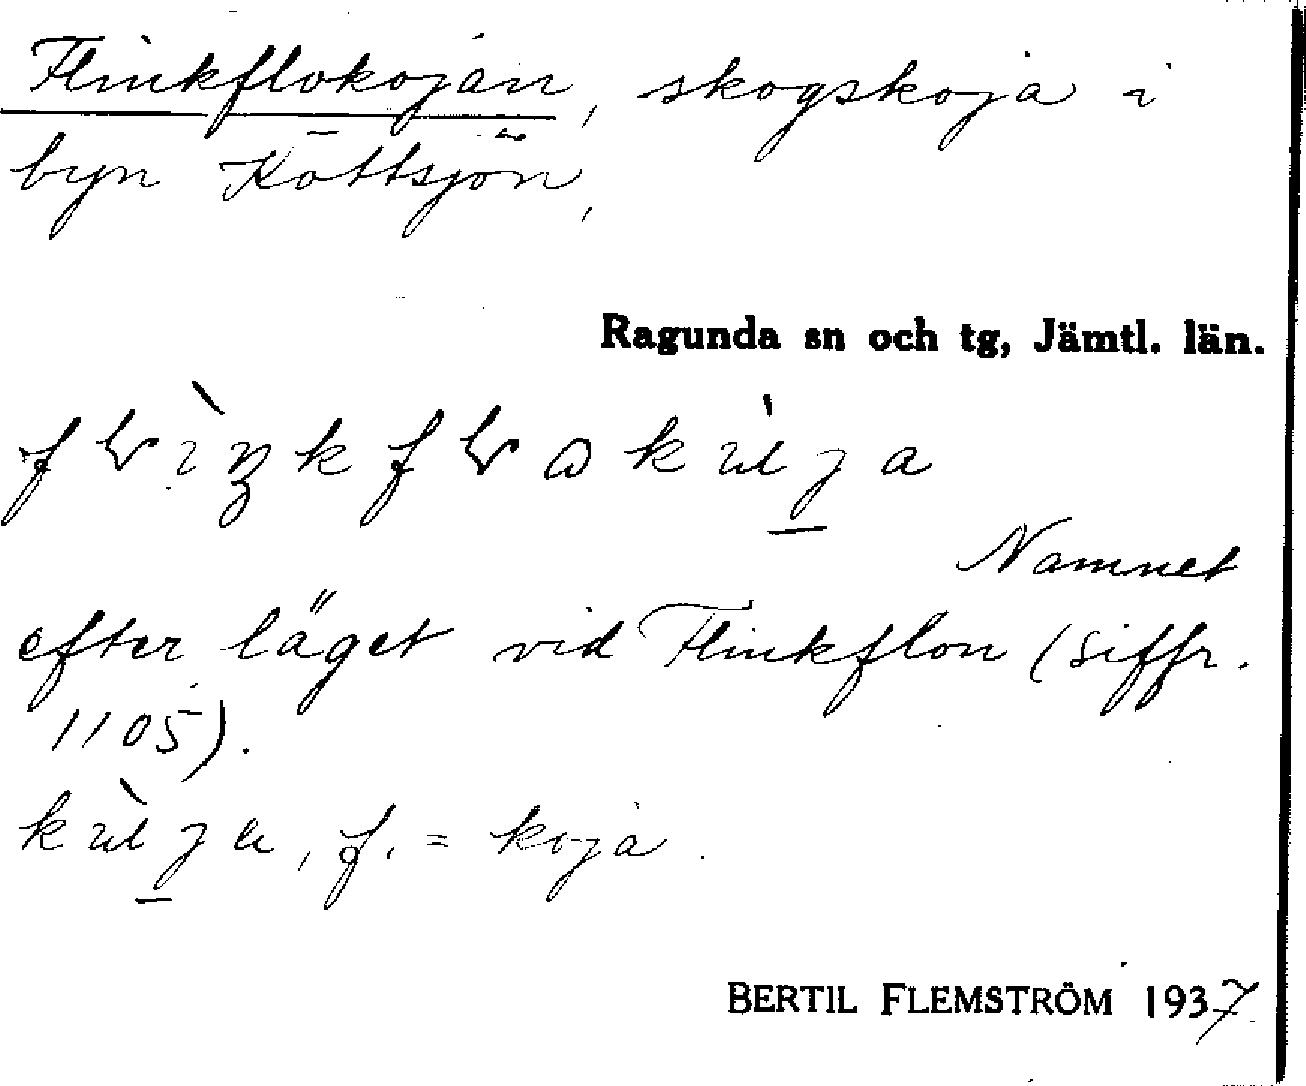 Flinkflokojan, skogskoja i
byn Köttsjön,
Ragunda sn och tg, Jämtl. län.
Namnet
efter läget vid Flinkflon (siffr.
1105).
f. = koja.
BERTIL FLEMSTRÖM 1937